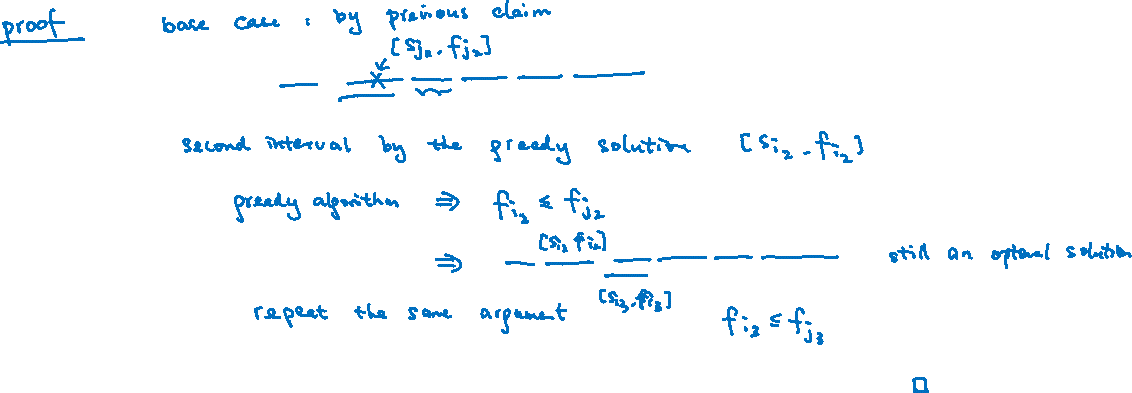 proof base case : by previous claim
[s_{j_2}, f_{j_2}]
second interval by the greedy solution [s_{i_2}, f_{i_2}]
greedy algorithm ⇒ f_{i_2} ≤ f_{j_2}
[s_{i_2} f_{i_2}]
⇒ still an optimal solution
[s_{i_3}, f_{i_3}]
repeat the same argument f_{i_3} ≤ f_{j_3}
□